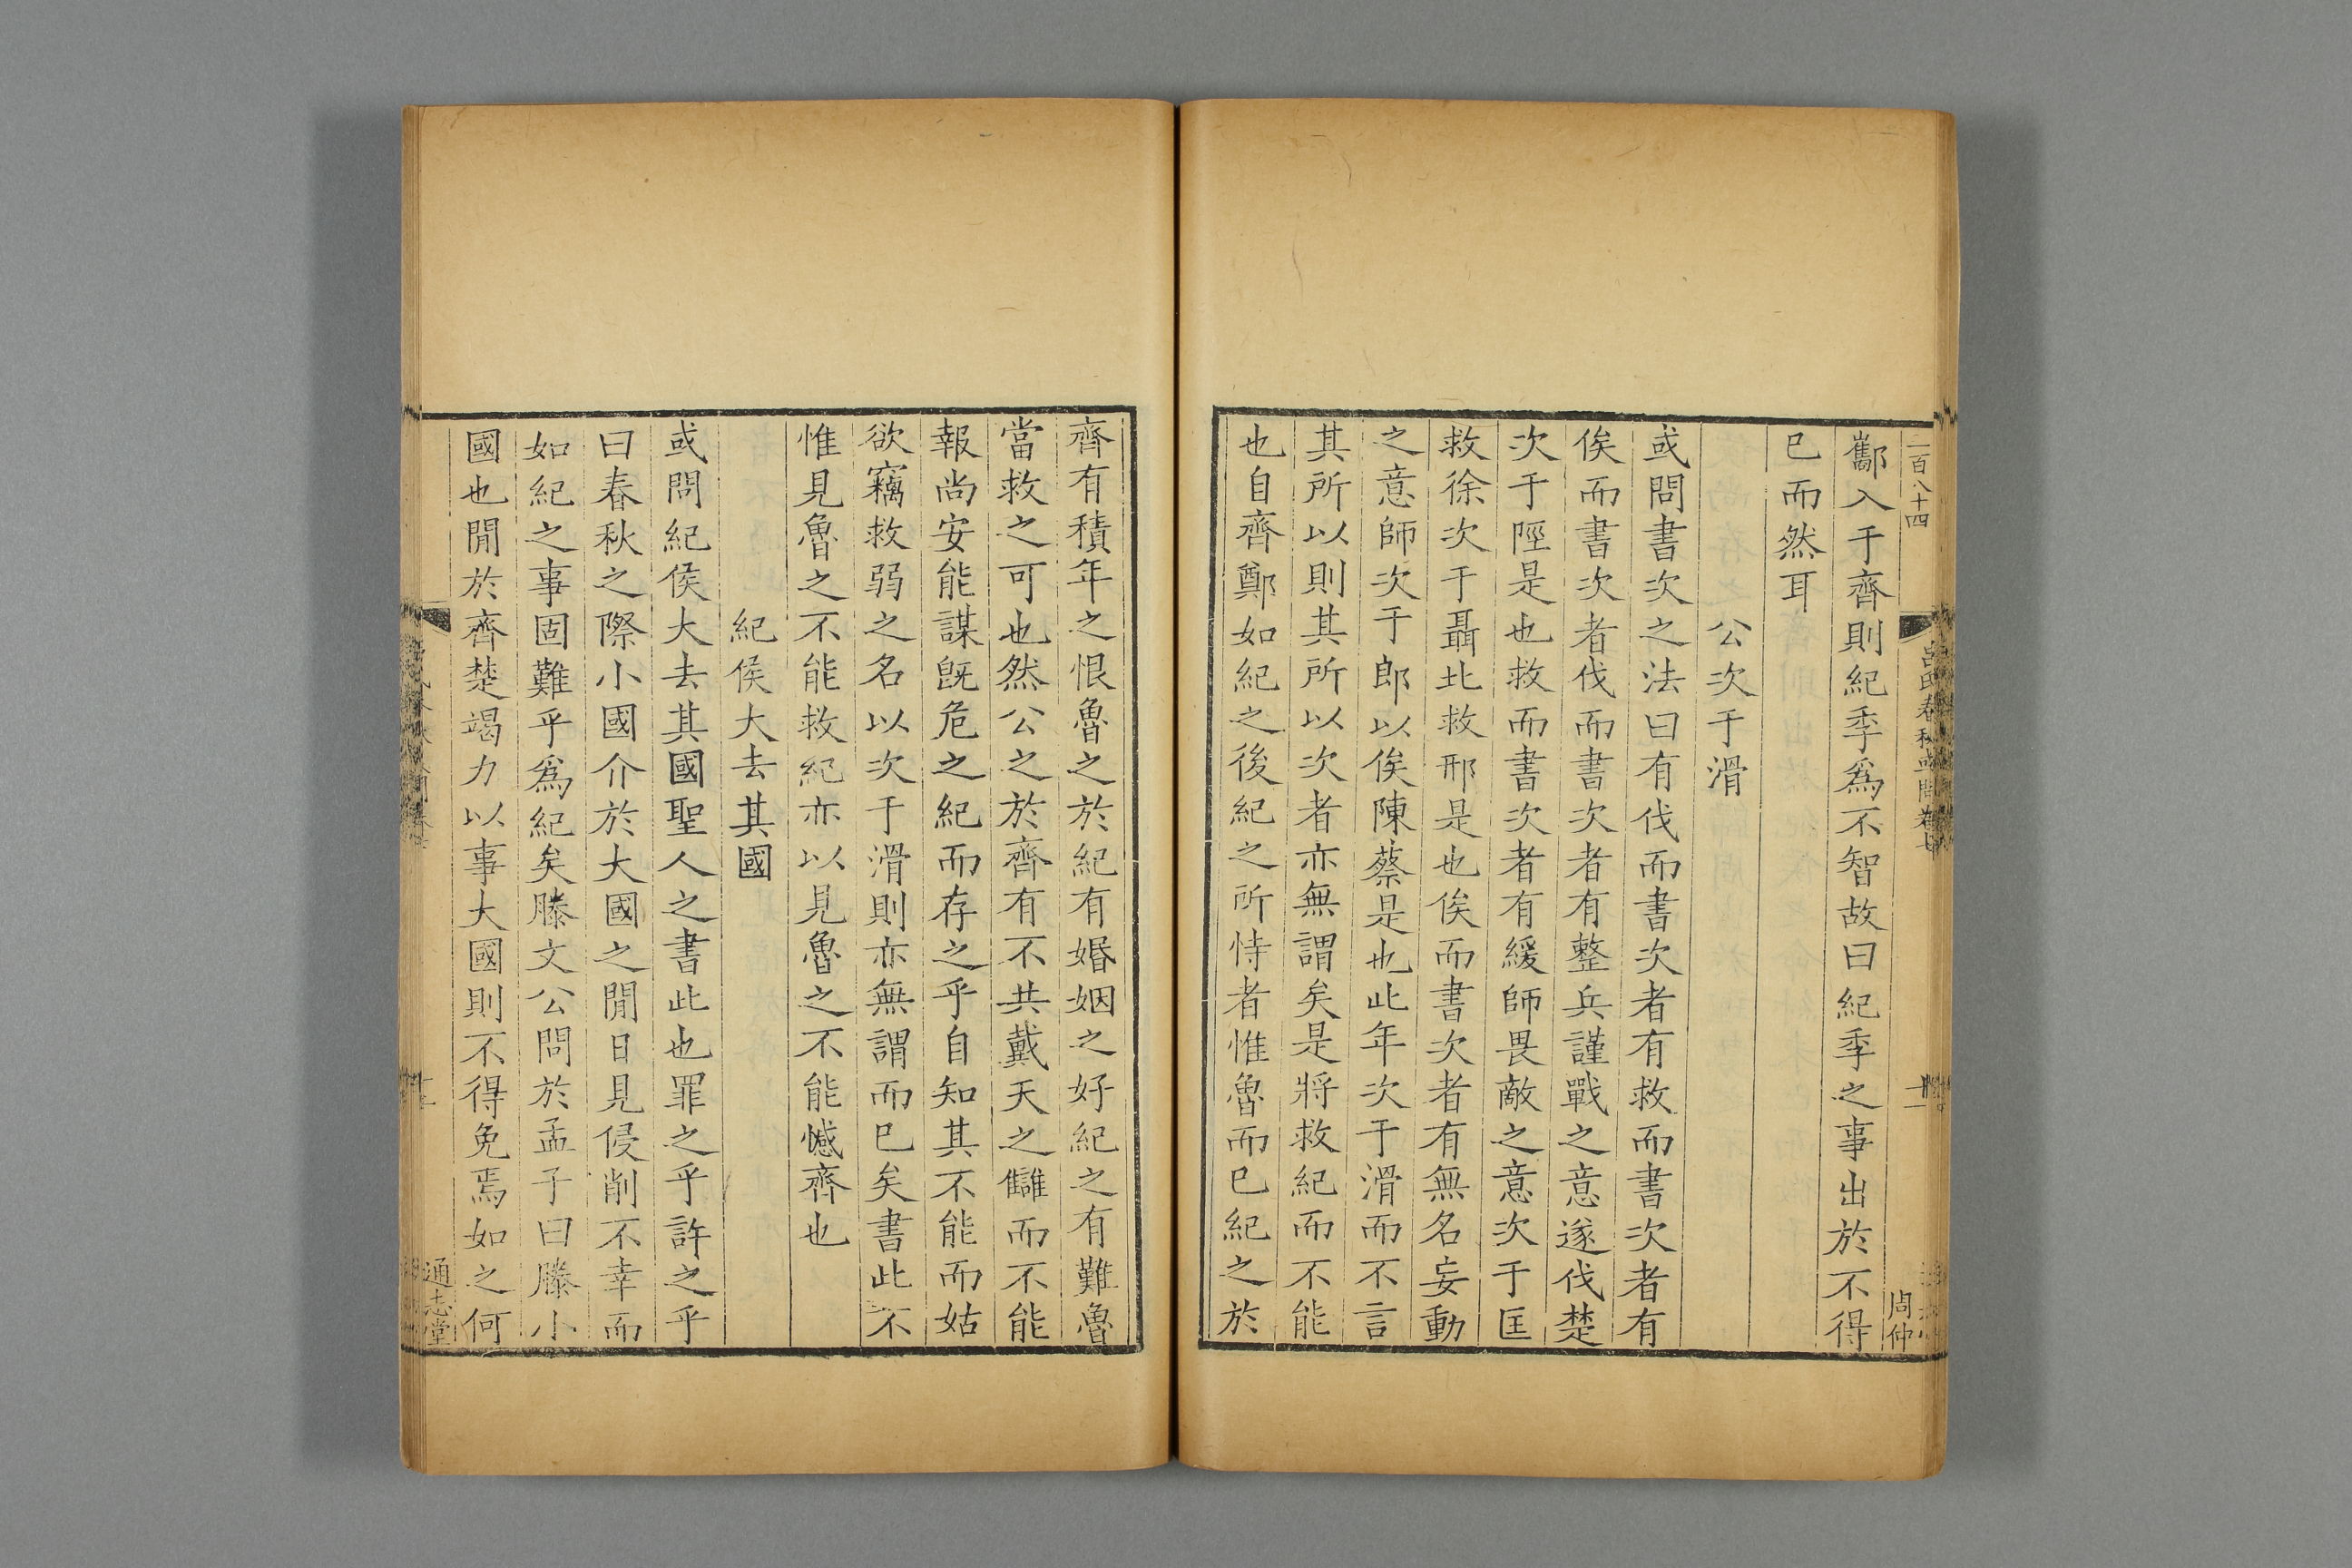 二百八十四
呂氏春秋或問卷七
周仲
酅入于齊則紀季爲不智故曰紀季之事出於不得
已而然耳
公次于滑
或問書次之法曰有伐而書次者有救而書次者有
俟而書次者伐而書次者有整兵謹戰之意遂伐楚
次于陘是也救而書次者有緩師畏敵之意次于匡
救徐次于聶北救邢是也俟而書次者有無名妄動
之意師次于郎以俟陳蔡是也此年次于滑而不言
其所以則其所以次者亦無謂矣是將救紀而不能
也自齊鄭如紀之後紀之所恃者惟魯而已紀之於
齊有積年之恨魯之於紀有婚姻之好紀之有難魯
當救之可也然公之於齊有不共戴天之讎而不能
報尚安能謀旣危之紀而存之乎自知其不能而姑
欲竊救弱之名以次于滑則亦無謂而已矣書此不
惟見魯之不能救紀亦以見魯之不能憾齊也
紀侯大去其國
或問紀侯大去其國聖人之書此也罪之乎許之乎
曰春秋之際小國介於大國之閒日見侵削不幸而
如紀之事固難乎爲紀矣滕文公問於孟子曰滕小
國也閒於齊楚竭力以事大國則不得免焉如之何
通志堂